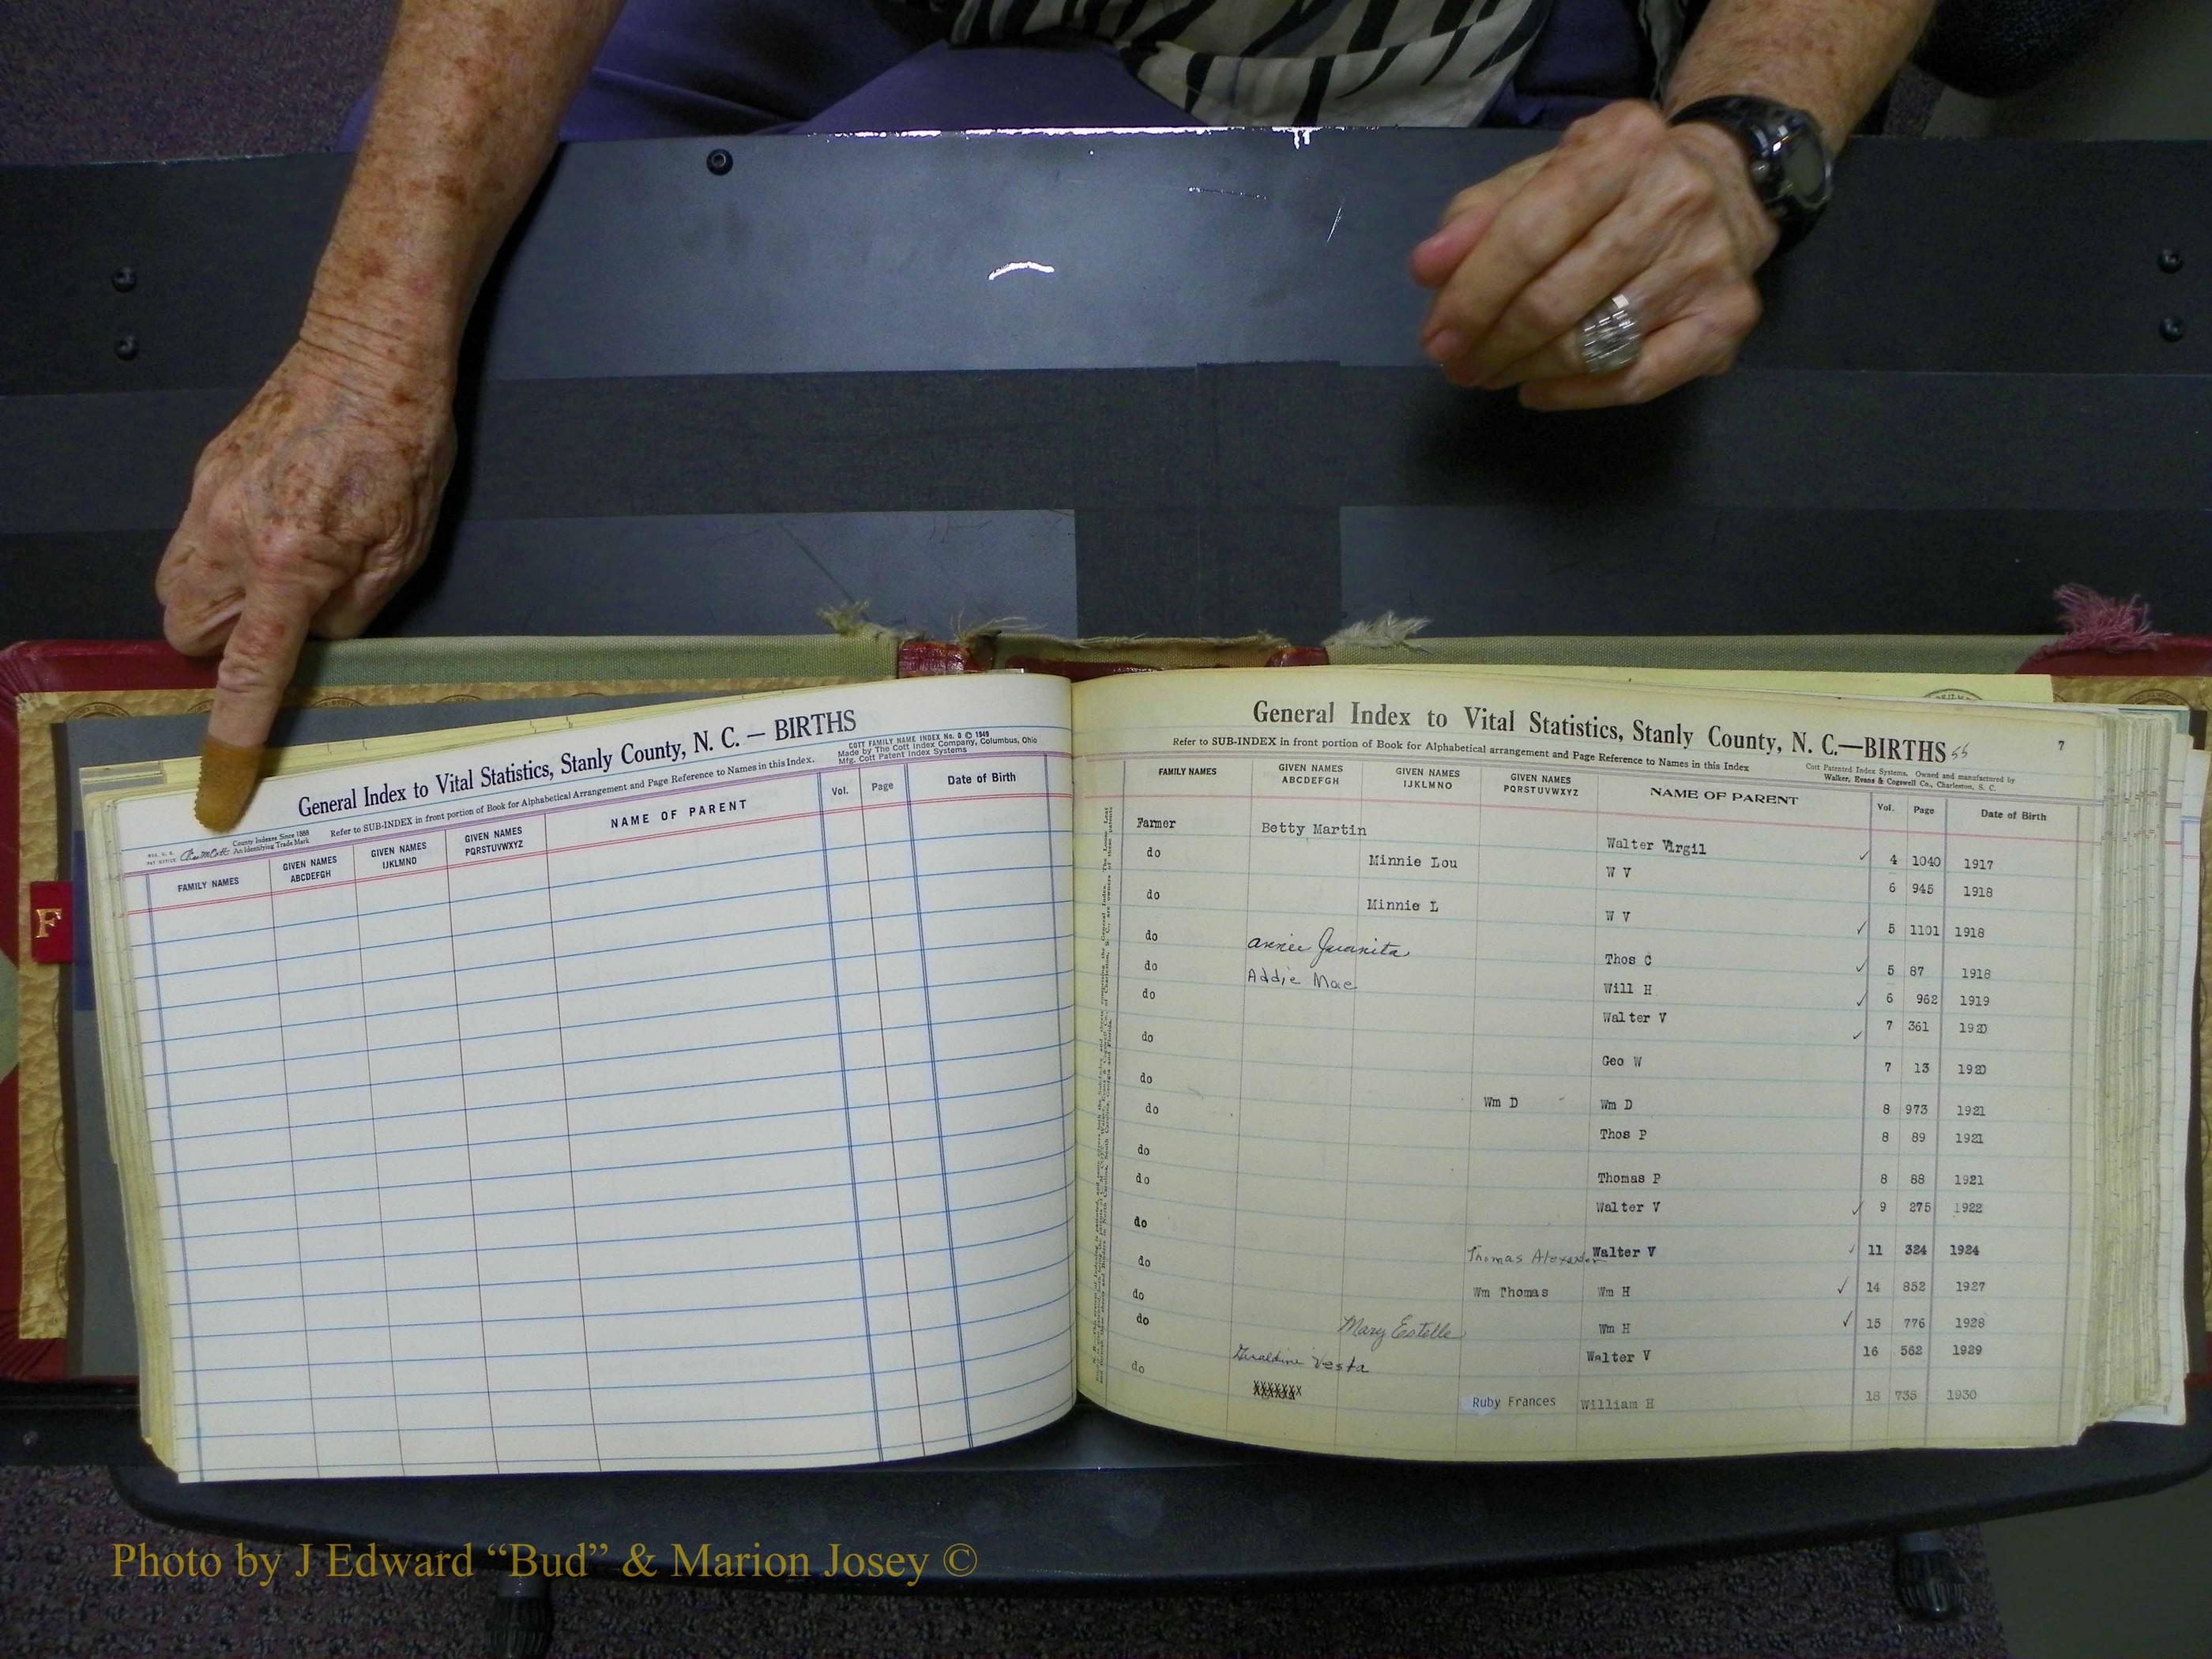 F
General Index to Vital Statistics, Stanly County, N. C. — BIRTHS
COTT FAMILY NAME INDEX No. 0 © 1949
Made by The Cott Index Company, Columbus, Ohio
Mfg. Cott Patent Index Systems
County Indexes Since 1888
An Identifying Trade Mark
Refer to SUB-INDEX in front portion of Book for Alphabetical Arrangement and Page Reference to Names in this Index.
FAMILY NAMES GIVEN NAMES ABCDEFGH GIVEN NAMES IJKLMNO GIVEN NAMES PQRSTUVWXYZ NAME OF PARENT Vol. Page Date of Birth
General Index to Vital Statistics, Stanly County, N. C.—BIRTHS 55 7
Refer to SUB-INDEX in front portion of Book for Alphabetical arrangement and Page Reference to Names in this Index
Cott Patented Index Systems, Owned and manufactured by
Walker, Evans & Cogswell Co., Charleston, S. C.
FAMILY NAMES GIVEN NAMES ABCDEFGH GIVEN NAMES IJKLMNO GIVEN NAMES PQRSTUVWXYZ NAME OF PARENT Vol. Page Date of Birth
Farmer Betty Martin Walter Virgil ✓ 4 1040 1917
do Minnie Lou W V 6 945 1918
do Minnie L W V ✓ 5 1101 1918
do Annie Juanita Thos C ✓ 5 87 1918
do Addie Mae Will H ✓ 6 962 1919
do Walter V 7 361 1920
do ✓ Geo W 7 13 1920
do Wm D Wm D 8 973 1921
do Thos P 8 89 1921
do Thomas P 8 88 1921
do Walter V ✓ 9 275 1922
do Thomas Alexander Walter V ✓ 11 324 1924
do Wm Thomas Wm H ✓ 14 852 1927
do Mary Estelle Wm H ✓ 15 776 1928
do Geraldine Vesta Walter V 16 562 1929
do XXXXXXX Ruby Frances William H 18 735 1930
Photo by J Edward “Bud” & Marion Josey ©